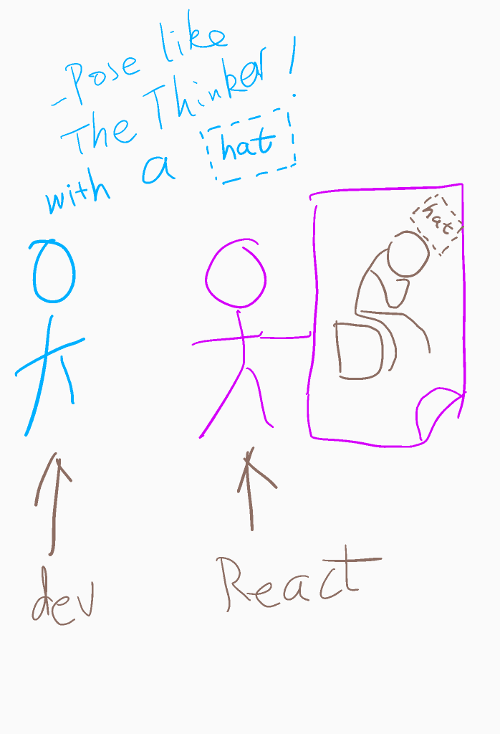 -Pose like
The Thinker!
with a hat
hat
dev
React